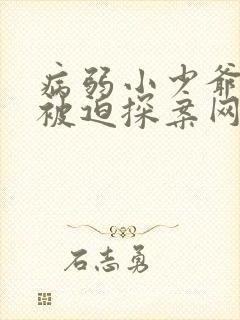 病弱小少爷
被迫探案网
石志勇